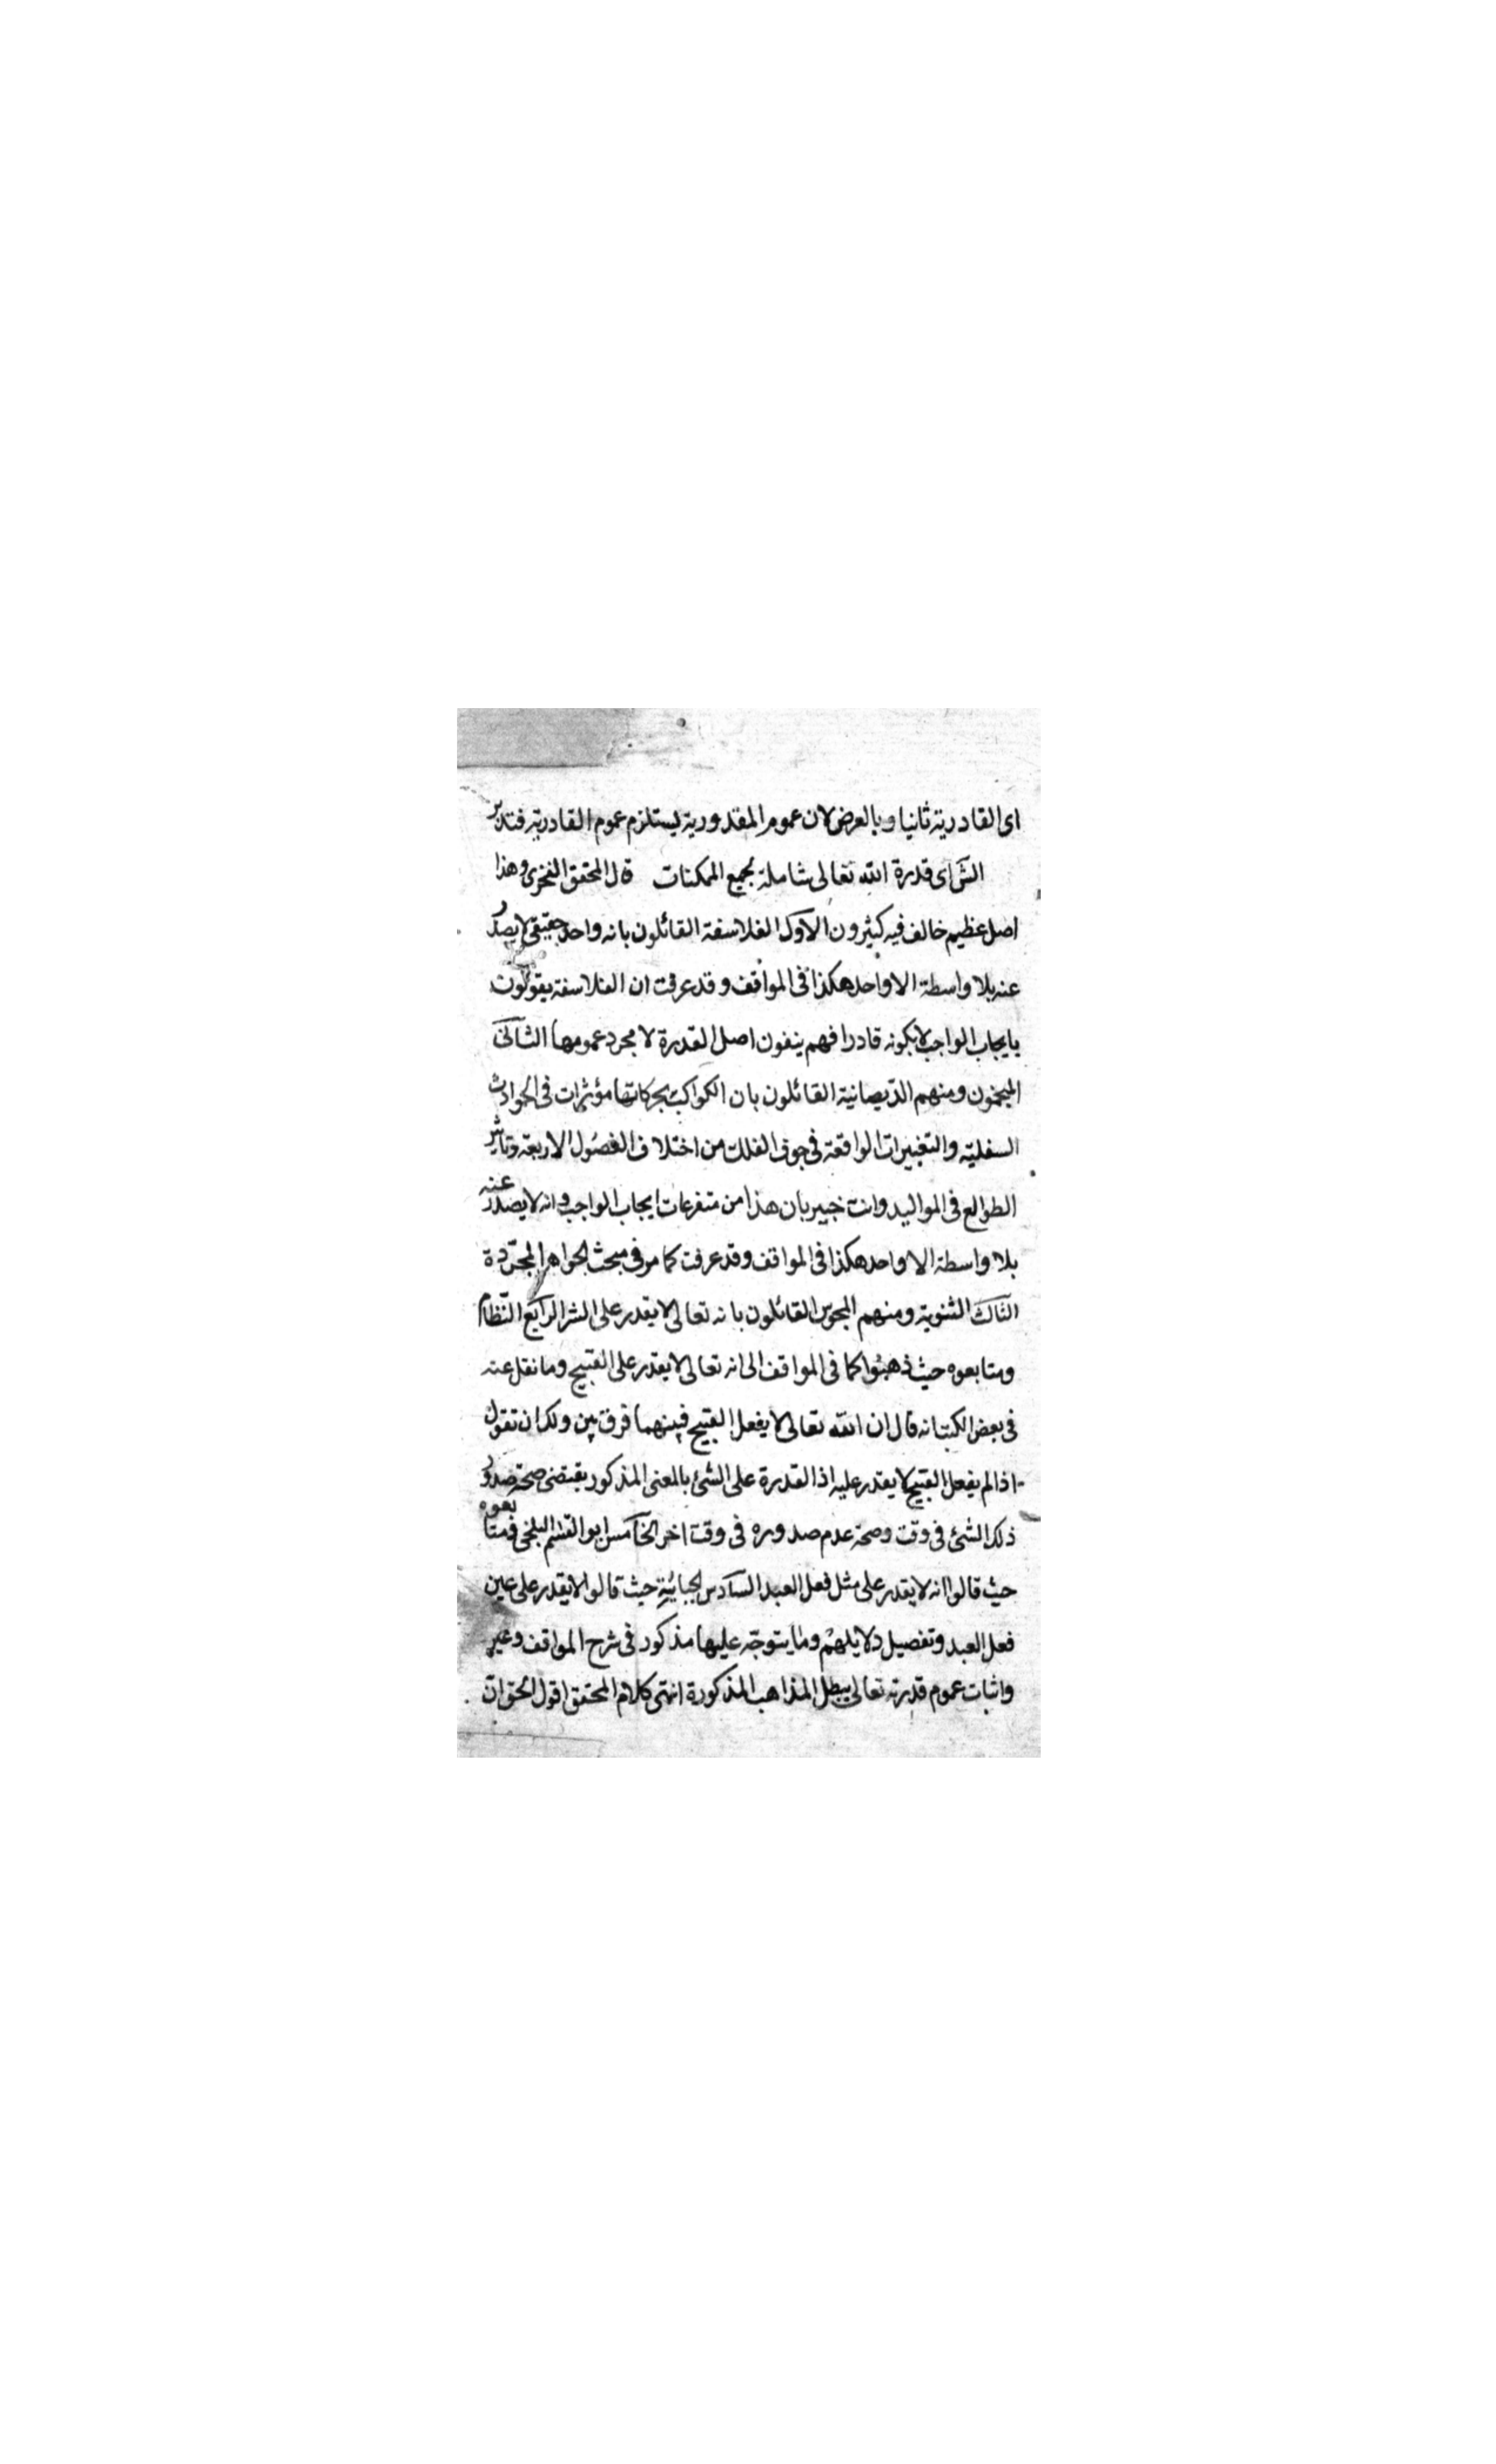 اى القادرية ثانيا وبالعرض لان عموم المقدورية يستلزم عموم القادرية فتدبر
الش اى قدرة الله تعالى شاملة بجميع الممكنات قال المحقق الفخرى وهذا
اصل عظيم خالف فيه كثيرون الاول الفلاسفة القائلون بانه واحد حقيقى لا يصدر
عنه بلا واسطة الا واحد هكذا فى المواقف وقد عرفت ان الفلاسفة يقولون
بايجاب الواجب لا بكونه قادرا فهم ينفون اصل القدرة لا مجرد عمومها الثانى
المنجمون ومنهم الديصانية القائلون بان الكواكب بحركاتها مؤثرات فى الحوادث
السفلية والتغييرات الواقعة فى جوف الفلك من اختلاف الفصول الاربعة وتأثير
الطوالع فى المواليد وانت خبير بان هذا من متفرعات ايجاب الواجب وانه لا يصدر عنه
بلا واسطة الا واحد هكذا فى المواقف وقد عرفت كما مر فى مبحث الجواهر المجردة
الثالث الثنوية ومنهم المجوس القائلون بانه تعالى لا يقدر على الشر الرابع النظام
ومتابعوه حيث ذهبوا كما فى المواقف الى انه تعالى لا يقدر على القبيح وما نقل عنه
فى بعض الكتب انه قال ان الله تعالى لا يفعل القبيح فبينهما فرق بين ولك ان تقول
اذا لم يفعل القبيح لا يقدر عليه اذ القدرة على الشئ بالمعنى المذكور يقتضى صحة صدور
ذلك الشئ فى وقت وصحة عدم صدوره فى وقت اخر الخامس ابو القسم البلخى ومتابعوه
حيث قالوا انه لا يقدر على مثل فعل العبد السادس الجبائية حيث قالوا لا يقدر على عين
فعل العبد وتفصيل دلايلهم وما يتوجه عليها مذكور فى شرح المواقف وغيره
واثبات عموم قدرته تعالى يبطل المذاهب المذكورة انتهى كلام المحقق اقول الحق ان